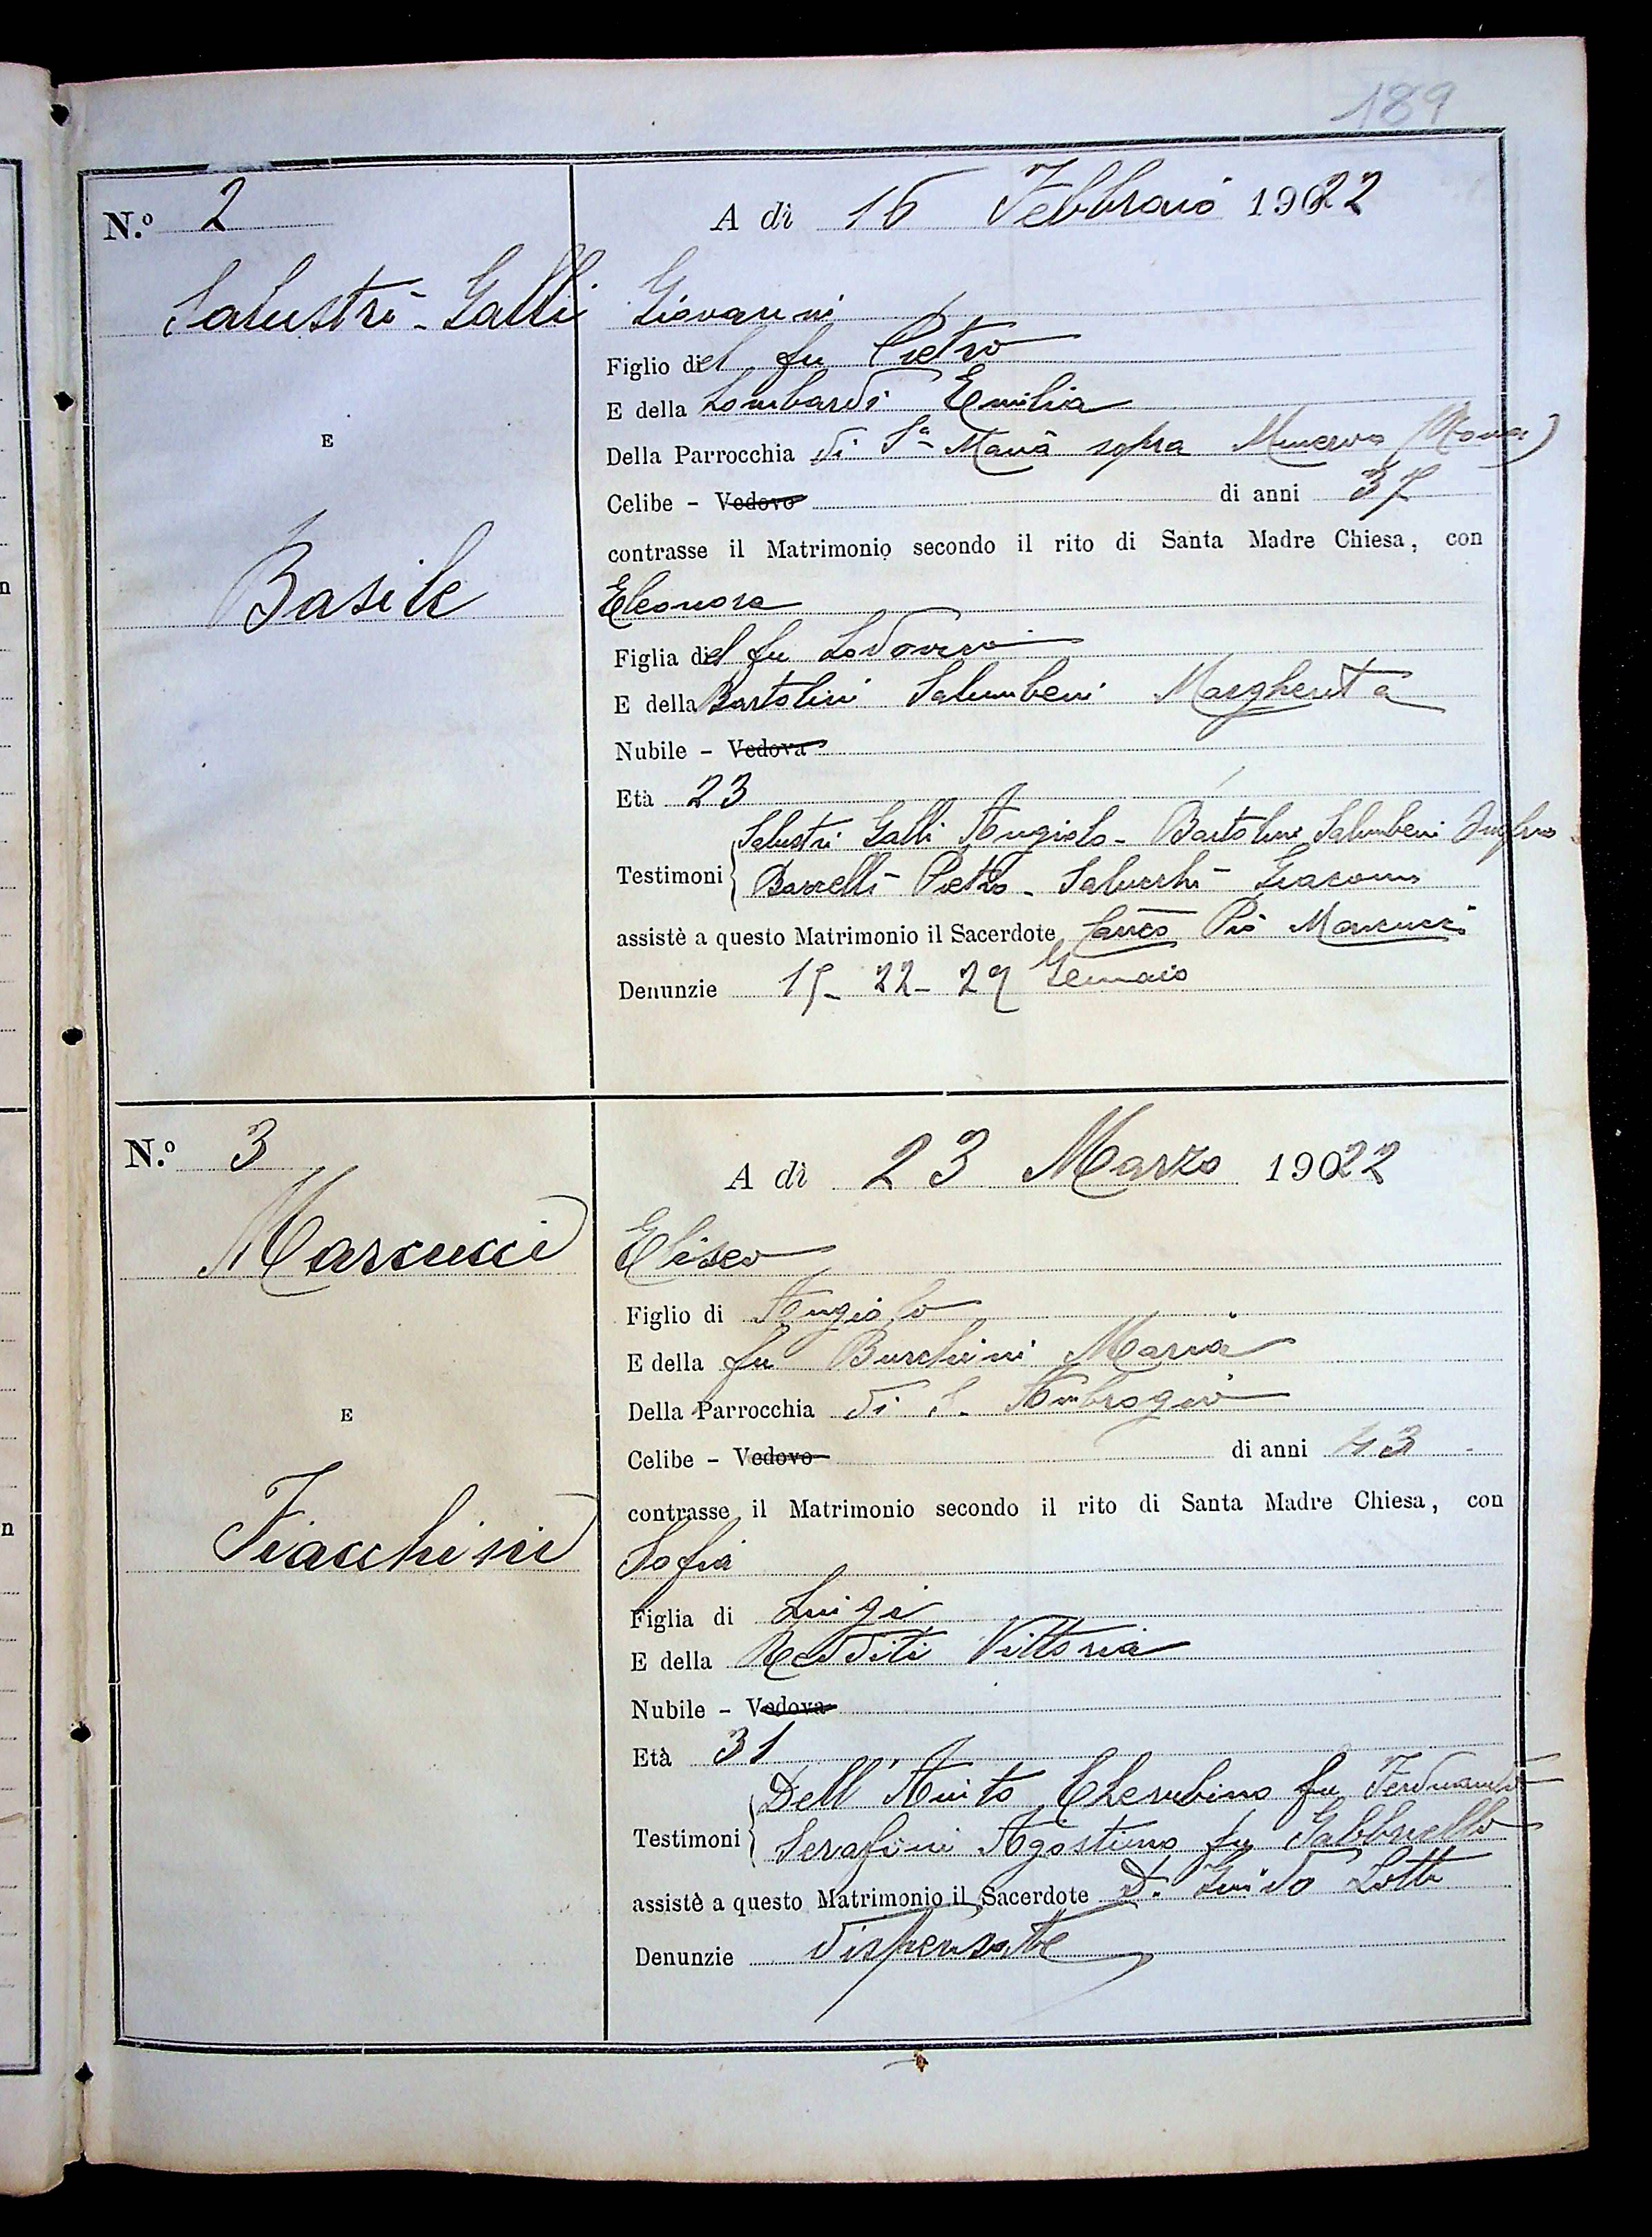 189
N.º 2
A dì 16 Febbraio 1922
Salustri-Galli Giovanni
Figlio del fu Pietro
E della Lombardi Emilia
Della Parrocchia di Sª Maria sopra Minerva (Roma)
E
Celibe - Vedovo di anni 37
contrasse il Matrimonio secondo il rito di Santa Madre Chiesa, con
Basile Eleonora
Figlia del fu Lodovico
E della Bartolini Salimbeni Margherita
Nubile - Vedova
Età 23
Salustri Galli Angiolo - Bartolini Salimbeni
Testimoni Barzelli Pietro - Giacomo
assistè a questo Matrimonio il Sacerdote Pio Marcucci
Denunzie 15 - 22 - 29 Gennaio
N.º 3
A dì 23 Marzo 1922
Marcucci Eliseo
Figlio di Angiolo
E della fu Burchini Maria
Della Parrocchia di S. Ambrogio
E
Celibe - Vedovo di anni 43
contrasse il Matrimonio secondo il rito di Santa Madre Chiesa, con
Fiacchini Sofia
Figlia di Luigi
E della Redditi Vittoria
Nubile - Vedova
Età 31
Dell' Cherubino fu Ferdinando
Testimoni Serafini Agostino fu Gabbriello
assistè a questo Matrimonio il Sacerdote D. Guido Lotti
Denunzie dispensate